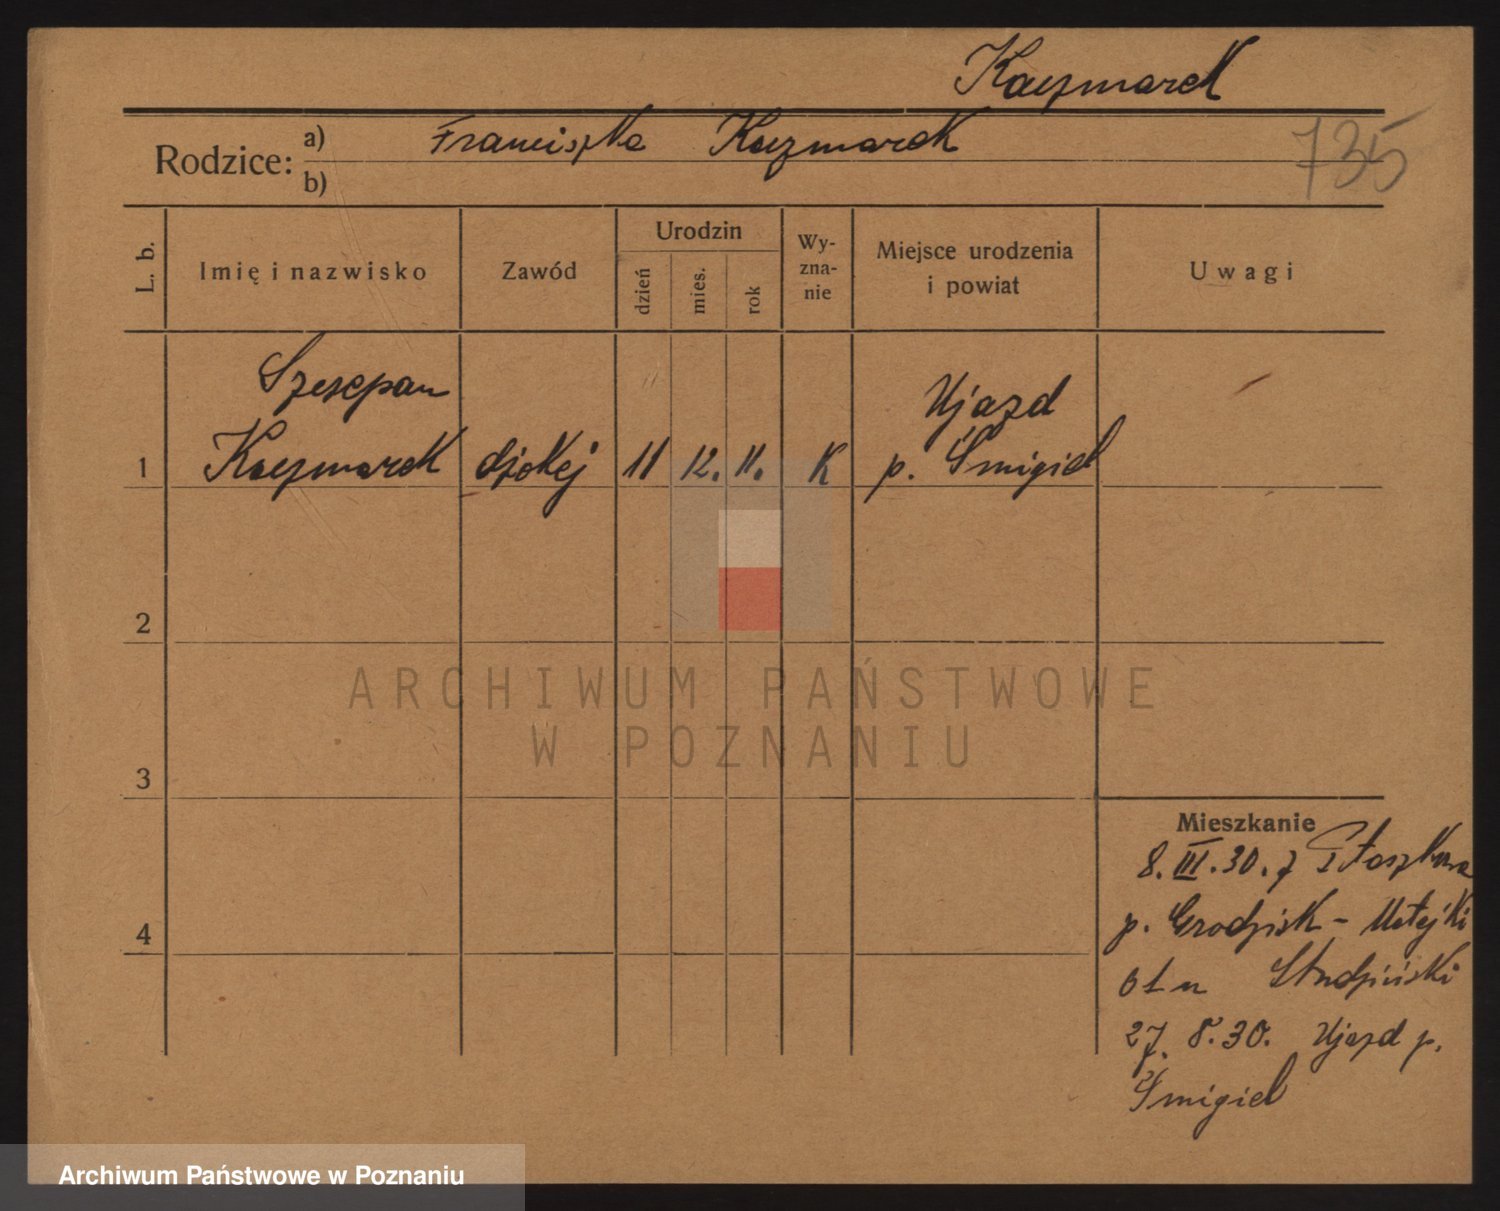 Kaczmarek
735
Rodzice: a) Franciszka Kaczmarek
b)
L. b.
Imię i nazwisko
Zawód
Urodzin
dzień
mies.
rok
Wy-
zna-
nie
Miejsce urodzenia
i powiat
Uwagi
Szczepan
Ujazd
1 Kaczmarek dżokej 11 12. 11. K p. Śmigiel
2
3
4
ARCHIWUM PAŃSTWOWE
W POZNANIU
Mieszkanie
8.III.30. z Ptaszkowa
p. Grodzisk - Matejki
61 u Studziński
27. 8.30. Ujazd p.
Śmigiel
Archiwum Państwowe w Poznaniu